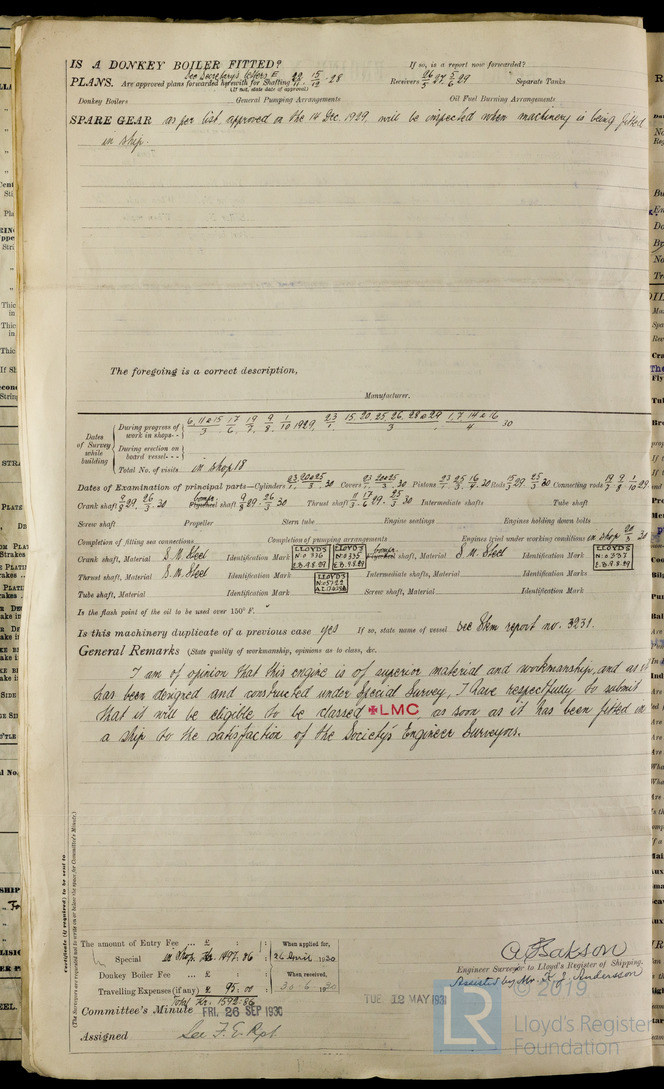 IS A DONKEY BOILER FITTED? If so, is a report now forwarded?
See Secretary's letters E
PLANS. Are approved plans forwarded herewith for Shafting 15/12 -28 Receivers 26/5 27 5/6 29 Separate Tanks
(If not, state date of approval)
Donkey Boilers General Pumping Arrangements Oil Fuel Burning Arrangements
SPARE GEAR as per list, approved on the 14 Dec. 1929, will be inspected when machinery is being fitted
in ship.
The foregoing is a correct description,
Manufacturer.
Dates of Survey while building
During progress of work in shops - - 6, 11 & 15/3 17/6 19/7 9/8 1/10 1929, 23/1, 15, 20, 25, 26, 28 & 29/3 1, 7, 14 & 16/4 30
During erection on board vessel - - -
Total No. of visits in shop 18
Dates of Examination of principal parts—Cylinders 23/1, 20 & 25/3 . 30 Covers 23/1, 20 & 25/3 . 30 Pistons 23/1 25/3 16/4 30 Rods 29 25/3 30 Connecting rods 19/7 9/8 1/10 29
Crank shaft 9/8 29, 26/3 . 30 compr. shaft 9/8 29. 26/3 . 30 Thrust shaft 11/3 17/6 29. 25/3 30 Intermediate shafts Tube shaft
Screw shaft Propeller Stern tube Engine seatings Engines holding down bolts
Completion of fitting sea connections Completion of pumping arrangements Engines tried under working conditions in shop 20/3 31
Crank shaft, Material S. M. Steel Identification Mark LLOYD'S No 336 E.B. 9.8.29 LLOYD'S No 335 E.B. 9.8.29 compr. shaft, Material S. M. Steel Identification Mark LLOYD'S No 337 E.B. 9.8.29
Thrust shaft, Material S. M. Steel Identification Mark LLOYD'S No 5729 Intermediate shafts, Material Identification Marks
Tube shaft, Material Identification Mark Screw shaft, Material Identification Mark
Is the flash point of the oil to be used over 150° F.
Is this machinery duplicate of a previous case yes If so, state name of vessel See Skm report no. 3231.
General Remarks (State quality of workmanship, opinions as to class, &c.
I am of opinion that this engine is of superior material and workmanship, and as it
has been designed and constructed under Special Survey, I have respectfully to submit
that it will be eligible to be classed ✠LMC as soon as it has been fitted in
a ship to the satisfaction of the Society's Engineer Surveyors.
Certificate (if required) to be sent to
(The Surveyors are requested not to write on or below the space for Committee's Minute.)
The amount of Entry Fee ... £ : : When applied for,
Special in shop Kr. 1497.86 26 April 1930
Donkey Boiler Fee ... £ : : When received,
Travelling Expenses (if any) £ 95.00 30.6.1930
Total Kr. 1592.86
Engineer Surveyor to Lloyd's Register of Shipping.
Assisted by Mr. K. J. Andersson
Committee's Minute FRI. 26 SEP 1930 TUE. 12 MAY 1931
Assigned See F. E. Rpt.
© 2019
LR
Lloyd's Register
Foundation